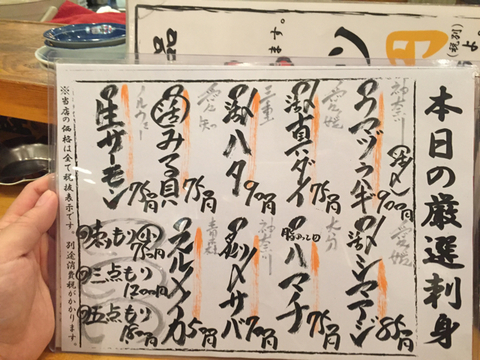 本日の厳選刺身
神奈川
ウマヅラハギ
900円
愛媛
活〆シマアジ
850円
愛媛
活真ダイ
750円
大分
ハマチ
750円
三重
活ハタ
900円
神奈川
炙〆サバ
700円
愛知
活みる貝
750円
青森
スルメイカ
500円
ノルウェー
生サーモン
750円
三点もり
1200円
五点もり
※当店の価格は全て税抜表示です。別途消費税がかかります。